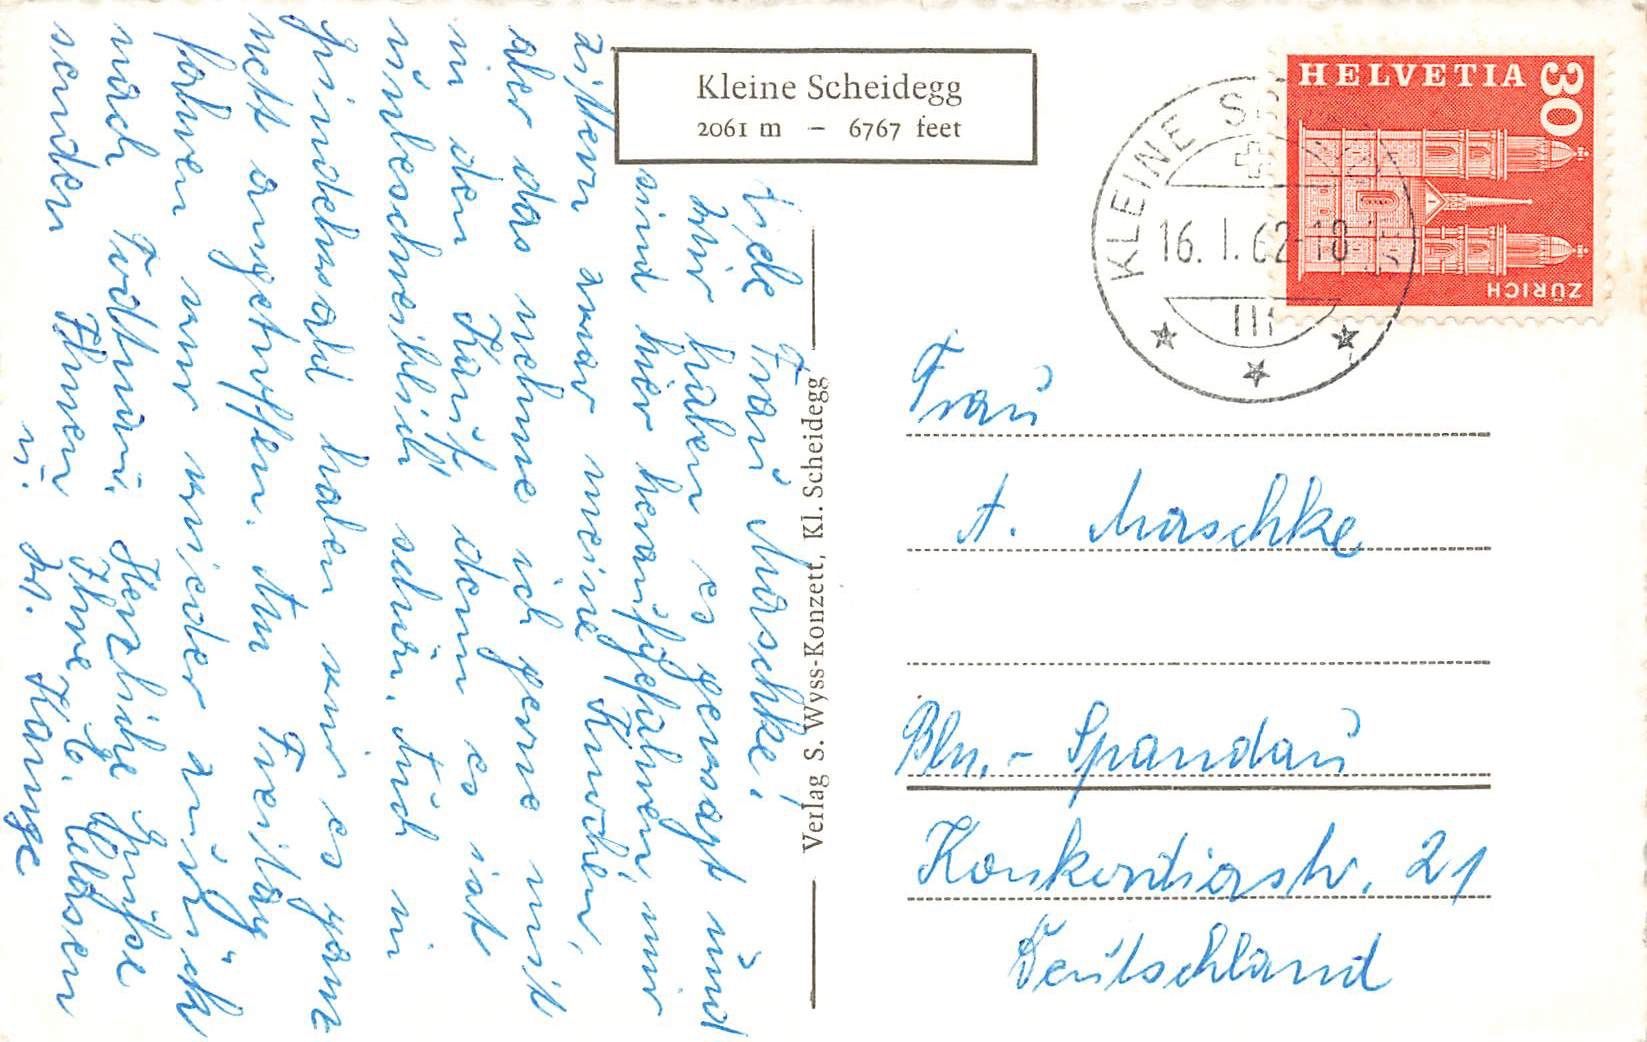 Kleine Scheidegg
2061 m – 6767 feet
HELVETIA
30
ZÜRICH
KLEINE
16. I. 62-18
Liebe Frau Maschke!
Wir haben es gewagt und
sind hier heraufgefahren, mir
zittern zwar meine Knochen,
aber das nehme ich gerne mit
in den Kauf, denn es ist
unbeschreiblich schön. Auch in
Grindelwald haben wir es ganz
nett angetroffen. Am Freitag
fahren wir wieder zurück
nach Todtnau. Herzliche Grüße
senden Ihnen Ihre E.
u. W. Kange
Verlag S. Wyss-Konzett, Kl. Scheidegg
Frau
A. Maschke
Bln.- Spandau
Konkordiastr. 21
Deutschland